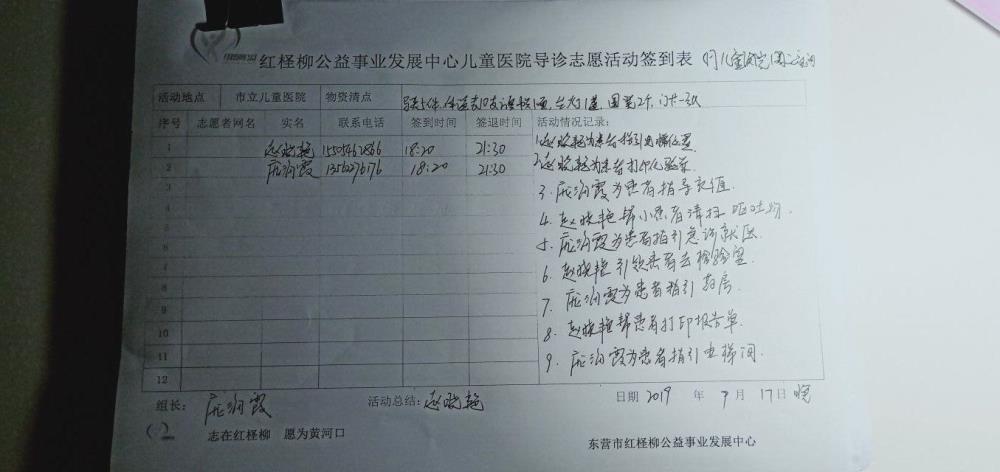 红柽柳公益事业发展中心儿童医院导诊志愿活动签到表
活动地点 市立儿童医院 物资清点
序号 志愿者网名 实名 联系电话 签到时间 签退时间 活动情况记录:
1 赵晓艳 18:20 21:30 1.赵晓艳为患者指引电梯位置
2 庞润霞 18:20 21:30 2.赵晓艳为患者打印化验单
3 3.庞润霞为患者指导充值.
4 4.赵晓艳帮小患者清扫呕吐物.
5 5.庞润霞为患者指引急诊就医.
6 6.赵晓艳引领患者去检验室.
7 7.庞润霞为患者指引药房.
8 8.赵晓艳帮患者打印报告单.
9 9.庞润霞为患者指引电梯间.
10
11
12
组长: 庞润霞 活动总结: 赵晓艳 日期 2019 年 7 月 17 日 晚
志在红柽柳 愿为黄河口
东营市红柽柳公益事业发展中心